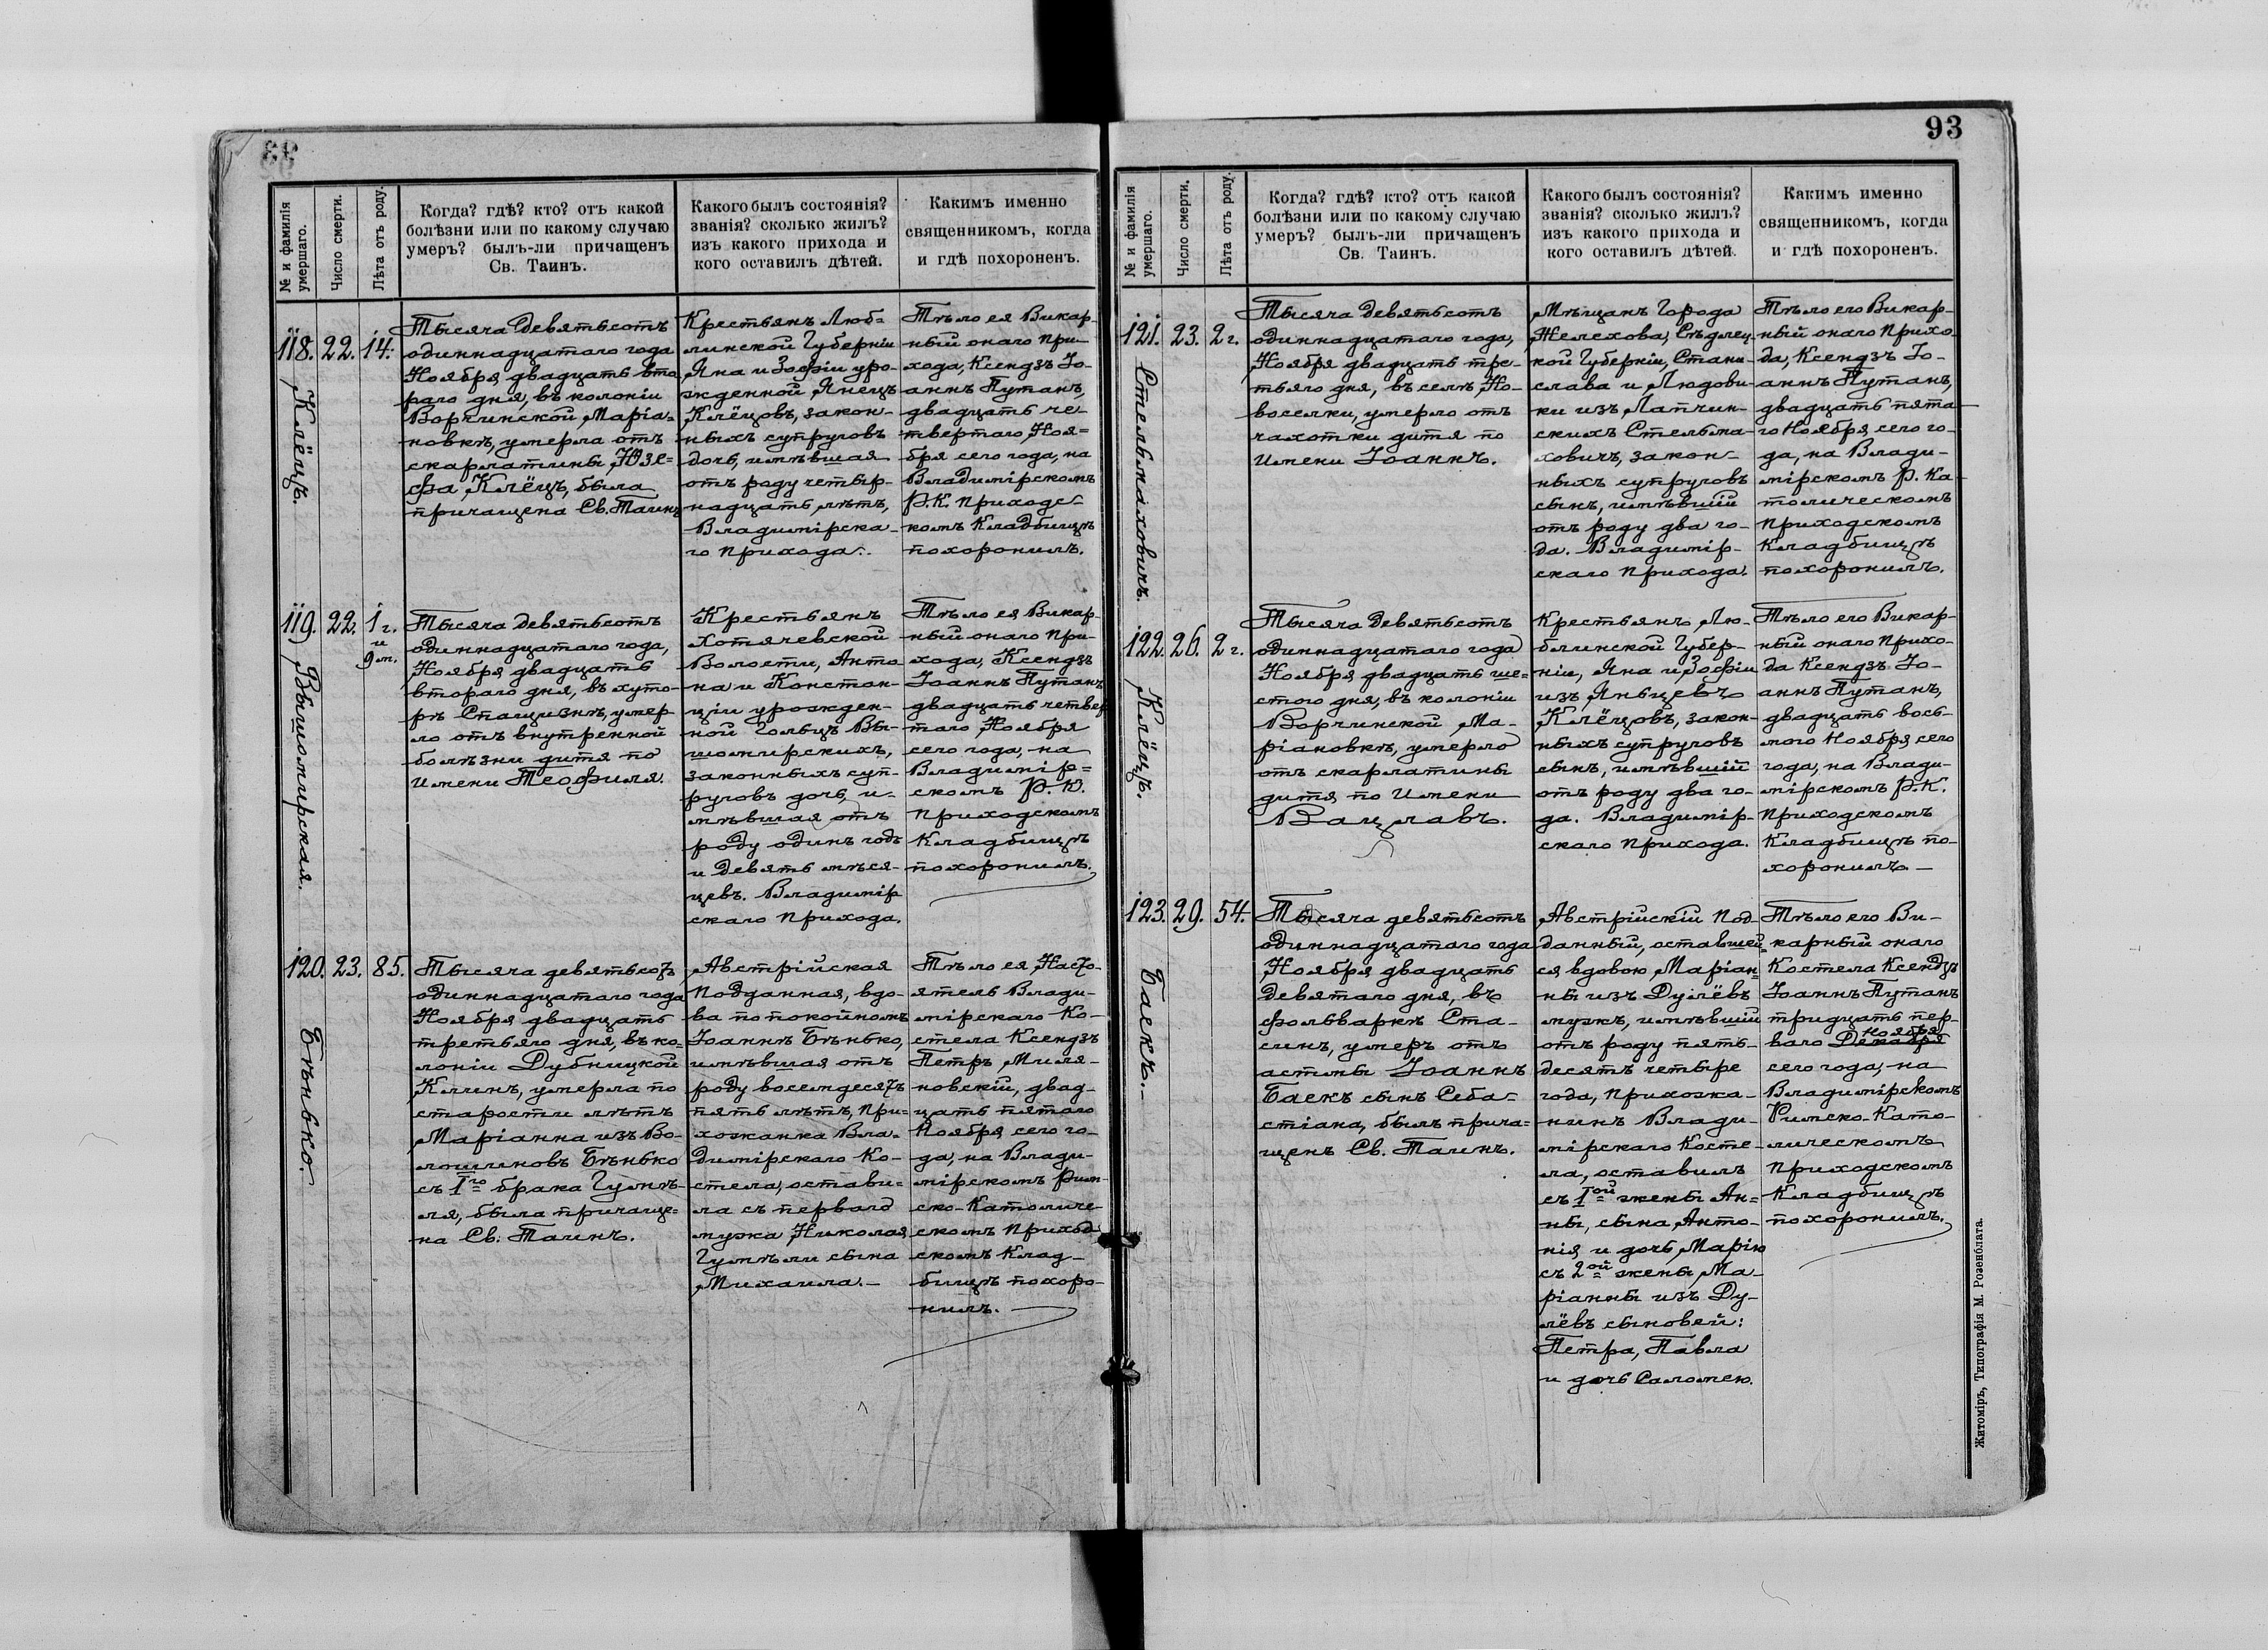 № и фамилія
умершаго.
Число смерти.
Лѣта отъ роду.
Когда? гдѣ? кто? отъ какой
болѣзни или по какому случаю
умеръ? былъ-ли причащенъ
Св. Таинъ.
Какого былъ состоянія?
званія? сколько жилъ?
изъ какого прихода и
кого оставилъ дѣтей.
Какимъ именно
священникомъ, когда
и гдѣ похороненъ.
118.
Клёцъ.
22.
14.
Тысяча девятьсотъ
одиннадцатаго года
Ноября двадцать вто
раго дня, въ колоніи
Ворчинской Маріа-
новкѣ, умерла отъ
скарлатины Юзе=
фа Клёцъ, была
причащена Св. Таинъ
Крестьянъ Люб=
линской Губерніи
Яна и Зофіи уро-
жденной Янецъ
Клёцовъ, закон-
ныхъ супруговъ
дочь, имѣвшая
отъ роду четыр-
надцать лѣтъ,
Владимірска-
го прихода.
Тѣло ея Викар-
ный онаго При-
хода, Ксендзъ Іо-
аннъ Путанъ,
двадцать че-
твертаго Ноя=
бря сего года, на
Владимірскомъ
Р.К. приходс-
комъ Кладбищѣ
похоронилъ.
119.
Вышомирская.
22.
1 г.
и
9 м.
Тысяча девятьсотъ
одиннадцатаго года,
Ноября двадцать
втораго дня, въ хуто-
рѣ Стащизнѣ, умер
ло отъ внутренной
болѣзни дитя по
имени Теофиля.
Крестьянъ
Хотячевской
Волости, Анто-
на и Констан-
ціи урожден-
ной Гольцъ Вы-
шомирскихъ,
законныхъ суп-
руговъ дочь, и-
мѣвшая отъ
роду одинъ годъ
и девять мѣся-
цевъ. Владимір
скаго прихода.
Тѣло ея Викар-
ный онаго При-
хода, Ксендзъ
Іоаннъ Путанъ
двадцать четвер
таго Ноября
сего года, на
Владимір=
скомъ Р. К.
приходскомъ
Кладбищѣ
похоронилъ.
120.
Бѣнько.
23.
85.
Тысяча девятьсотъ
одиннадцатаго года
Ноября двадцать
третьяго дня, въ ко=
лоніи Дубницкой
Клинъ, умерла по
старости лѣтъ
Маріанна изъ Во-
лошиновъ Бѣнько
съ I го брака Гумѣ-
ля, была причаще=
на Св. Таинъ.
Австрійская
подданная, вдо-
ва по покойномъ
Іоаннѣ Бѣнько,
имѣвшая отъ
роду восемдесятъ
пять лѣтъ, при=
хожанка Вла-
димірскаго Ко-
стела, остави=
ла съ перваго
мужа Николая
Гумѣли сына
Михаила.—
Тѣло ея, Насто-
ятель Влади-
мірскаго Ко-
стела Ксендзъ
Петръ Миля-
новскій, двад-
цать пятаго
Ноября сего го-
да, на Влади-
мірскомъ Рим-
ско-Католиче-
скомъ приход
скомъ Клад-
бищѣ похоро-
нилъ.
93
№ и фамилія
умершаго.
Число смерти.
Лѣта отъ роду.
Когда? гдѣ? кто? отъ какой
болѣзни или по какому случаю
умеръ? былъ-ли причащенъ
Св. Таинъ.
Какого былъ состоянія?
званія? сколько жилъ?
изъ какого прихода и
кого оставилъ дѣтей.
Какимъ именно
священникомъ, когда
и гдѣ похороненъ.
121.
Стельмаховичъ.
23.
2 г.
Тысяча девятьсотъ
одиннадцатаго года,
Ноября двадцать тре-
тьяго дня, въ селѣ Но-
воселки, умерло отъ
чахотки дитя по
имени Іоаннъ.
Мѣщанъ Города
Желехова, Сѣдлец
кой Губерніи, Стани-
слава и Людови-
ки изъ Лапчин-
скихъ Стельма-
ховичъ, закон-
ныхъ супруговъ
сынъ, имѣвшій
отъ роду два го-
да. Владимір-
скаго прихода.
Тѣло его Викар-
ный онаго Прихо-
да, Ксендзъ Іо-
аннъ Путанъ,
двадцать пята-
го Ноября сего го-
да, на Влади-
мірскомъ Р. Ка-
толическомъ
приходскомъ
Кладбищѣ
похоронилъ.
122.
Клёцъ.
26.
2 г.
Тысяча девятьсотъ
одиннадцатаго года
Ноября двадцать ше=
стого дня, въ колоніи
Ворчинской Ма-
ріановкѣ, умерло
отъ скарлатины
дитя по имени
Вацлавъ.
Крестьянъ Лю-
блинской Губер-
ніи, Яна и Зофіи
изъ Яньцевъ
Клёцовъ, закон-
ныхъ супруговъ
сынъ, имѣвшій
отъ роду два го-
да. Владимір-
скаго прихода.
Тѣло его Викар-
ный онаго Прихо-
да Ксендзъ Іо-
аннъ Путанъ,
двадцать вось-
мого Ноября сего
года, на Влади-
мірскомъ Р.К.
приходскомъ
Кладбищѣ по-
хоронилъ —
123.
Баекъ.
29.
54.
Тысяча девятьсотъ
одиннадцатаго года
Ноября двадцать
девятаго дня, въ
фольваркѣ Ста-
синъ, умеръ отъ
астмы Іоаннъ
Баекъ сынъ Себа-
стіана, былъ прича=
щенъ Св. Таинъ.
Австрійскій под-
данный, оставшей=
ся вдовою Маріан=
ны изъ Дулёвъ
мужъ, имѣвшій
отъ роду пять-
десятъ четыре
года, прихожа-
нинъ Влади-
мірскаго Косте-
ла, оставилъ
съ I ой жены Ан=
ны, сына Анто-
нія и дочь Марію
съ 2 ой жены Ма-
ріанны изъ Ду-
лёвъ сыновей:
Петра, Павла
и дочь Саломею.
Тѣло его Ви-
карный онаго
Костела Ксендзъ
Іоаннъ Путанъ
тридцать пер-
Ноября
ваго Декабря
сего года, на
Владимірскомъ
Римско-Като-
лическомъ
приходскомъ
Кладбищѣ
похоронилъ.
Житоміръ, Типографія М. Розенблата.